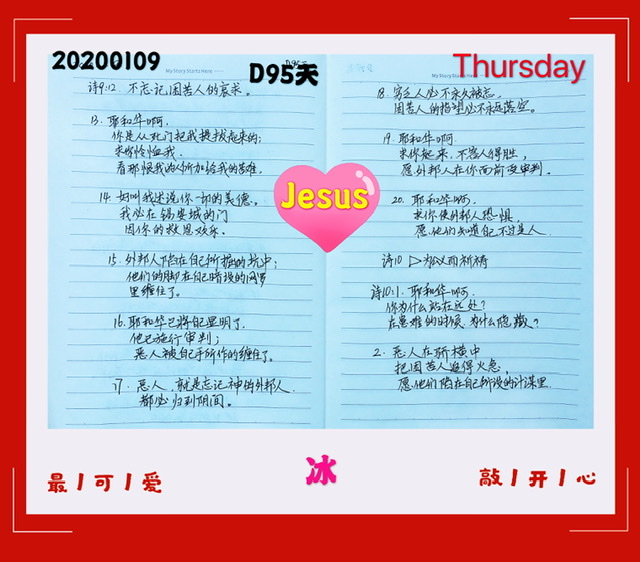 20200109
D95天
Thursday
My Story Starts Here
诗9:12. 不忘记困苦人的哀求。
13. 耶和华啊,
你是从死门把我提拔起来的;
求你怜恤我,
看那恨我的人所加给我的苦难,
14. 好叫我述说你一切的美德。
我必在锡安城的门
因你的救恩欢乐。
15. 外邦人陷在自己所掘的坑中;
他们的脚在自己暗设的网罗
里缠住了。
16. 耶和华已将自己显明了,
他已施行审判;
恶人被自己手所作的缠住了。
17. 恶人,就是忘记神的外邦人
都必归到阴间。
Jesus
18. 穷乏人必不永久被忘,
困苦人的指望必不永远落空。
19. 耶和华啊,
求你起来,不容人得胜,
愿外邦人在你面前受审判。
20. 耶和华啊,
求你使外邦人恐惧,
愿他们知道自己不过是人
诗10
诗10:1. 耶和华啊,
你为什么站在远处?
在患难的时候为什么隐藏?
2. 恶人在骄横中
把困苦人追得火急,
愿他们陷在自己所设的计谋里.
最 | 可 | 爱
冰
敲 | 开 | 心